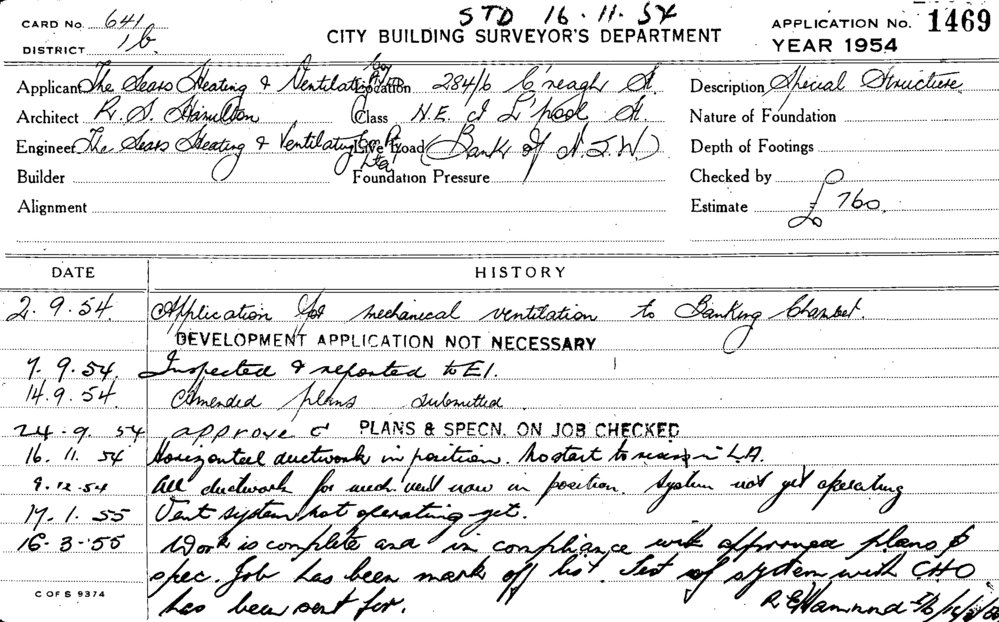 STD 16.11.54
CARD No. 641
DISTRICT 1b
CITY BUILDING SURVEYOR'S DEPARTMENT
APPLICATION No. 1469
YEAR 1954
Applicant The Sears Heating & Ventilating Coy P/L
Location 284/6 C'reagh St.
Description Special Structure
Architect R. S. Hamilton
Class N.E. I L'pool St.
Nature of Foundation
Engineer The Sears Heating & Ventilating Co. P. Ltd
Live Load (Bank of N.S.W.)
Depth of Footings
Builder
Foundation Pressure
Checked by
Alignment
Estimate £760.
DATE HISTORY
2.9.54. Application for mechanical ventilation to Banking Chamber.
DEVELOPMENT APPLICATION NOT NECESSARY
7.9.54. Inspected & reported to E1.
14.9.54. Amended plans submitted.
24-9.54 approved PLANS & SPECN. ON JOB CHECKED
16.11.54 Horizontal ductwork in position. No start to in L.A.
9.12.54 All ductwork for mech. vent now in position. System not yet operating
17.1.55 Vent system not operating yet.
16-3-55 Work is complete and in compliance with approved plans &
spec. Job has been mark off list. Test of system with CHO
has been sent for. R E Hammond
C OF S 9374